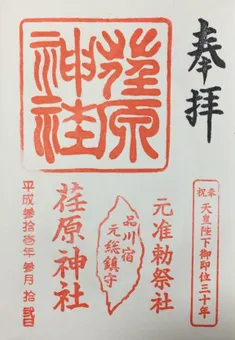 奉拝
奉祝 天皇陛下御即位三十年
元准勅祭社
荏原神社
品川宿
元総鎮守
荏原神社
平成叁拾壱年叁月拾弐日